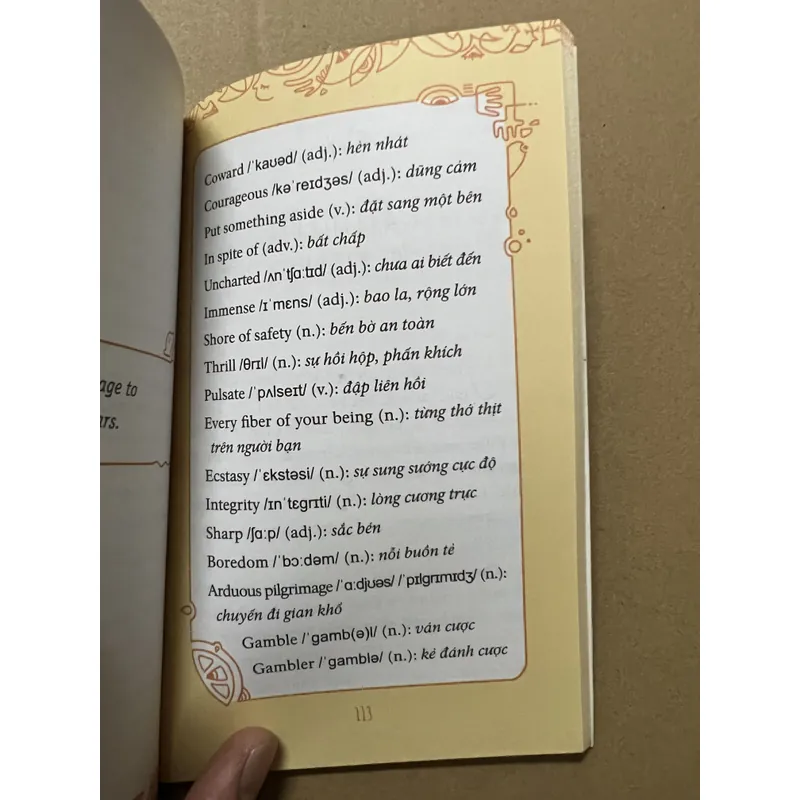 age to
rs.
Coward /ˈkaʊəd/ (adj.): hèn nhát
Courageous /kəˈreɪdʒəs/ (adj.): dũng cảm
Put something aside (v.): đặt sang một bên
In spite of (adv.): bất chấp
Uncharted /ʌnˈtʃɑːtɪd/ (adj.): chưa ai biết đến
Immense /ɪˈmɛns/ (adj.): bao la, rộng lớn
Shore of safety (n.): bến bờ an toàn
Thrill /θrɪl/ (n.): sự hồi hộp, phấn khích
Pulsate /ˈpʌlseɪt/ (v.): đập liên hồi
Every fiber of your being (n.): từng thớ thịt
trên người bạn
Ecstasy /ˈɛkstəsi/ (n.): sự sung sướng cực độ
Integrity /ɪnˈtɛgrɪti/ (n.): lòng cương trực
Sharp /ʃɑːp/ (adj.): sắc bén
Boredom /ˈbɔːdəm/ (n.): nỗi buồn tẻ
Arduous pilgrimage /ˈɑːdjʊəs/ /ˈpɪlgrɪmɪdʒ/ (n.):
chuyến đi gian khổ
Gamble /ˈgamb(ə)l/ (n.): ván cược
Gambler /ˈgamblə/ (n.): kẻ đánh cược
113